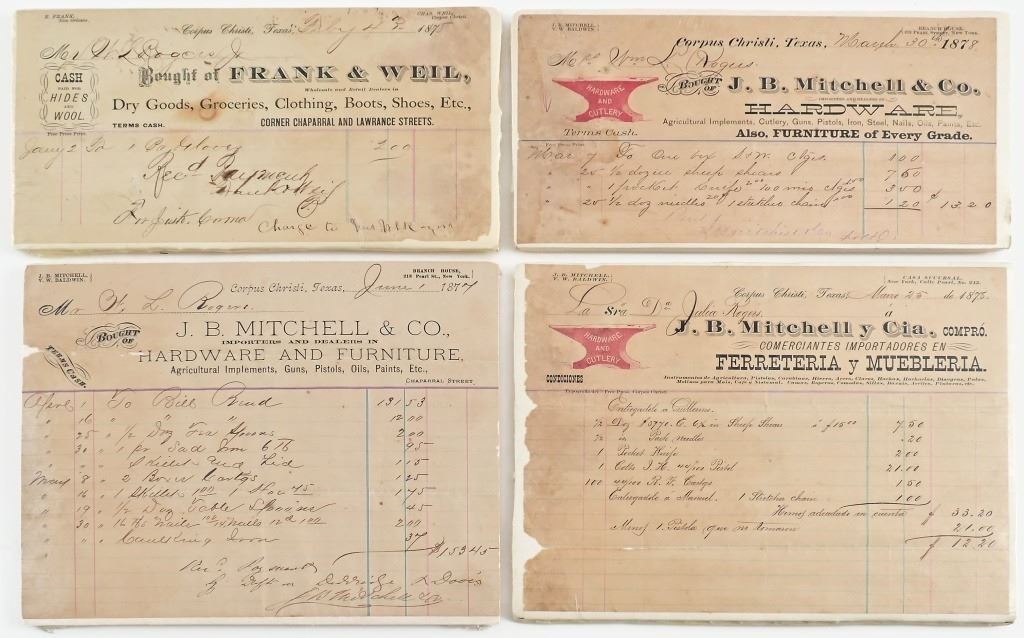 E. FRANK,
New Orleans.
CHAS. WEIL,
Corpus Christi.
Corpus Christi, Texas, Feby 4th 1875
Mr W L Rogers Jr
Bought of FRANK & WEIL,
Wholesale and Retail Dealers in
CASH
PAID FOR
HIDES
AND
WOOL.
Dry Goods, Groceries, Clothing, Boots, Shoes, Etc.,
TERMS CASH.
CORNER CHAPARRAL AND LAWRANCE STREETS.
Free Press Print.
Jany 2 To 1 Pr Gloves 2.00
Recd Payment
Frank & Weil
Charge to
J. B. MITCHELL.
V. W. BALDWIN.
BRANCH HOUSE,
Pearl Street, New York.
Corpus Christi, Texas, March 30th 1878
Wm L Rogers.
BOUGHT OF J. B. Mitchell & Co.
IMPORTERS AND DEALERS IN
HARDWARE
AND
CUTLERY
HARDWARE,
Agricultural Implements, Cutlery, Guns, Pistols, Iron, Steel, Nails, Oils, Paints, Etc.
Terms Cash.
Also, FURNITURE of Every Grade.
Free Press Print.
Mar 7 To One box S&W Ctges 1 00
" 20 1/2 dozen sheep shears 7 50
" " 1 pocket Knife 2.00 100 ctges 3 50
" 25 1/2 doz needles 20 1 stretcher chain 1.00 1 20 $ 13.20
J. B. MITCHELL.
V. W. BALDWIN.
BRANCH HOUSE,
212 Pearl St., New York.
Corpus Christi, Texas, June 1 1877
Mr W. L. Rogers
BOUGHT OF
J. B. MITCHELL & CO.,
IMPORTERS AND DEALERS IN
HARDWARE AND FURNITURE,
TERMS CASH.
Agricultural Implements, Guns, Pistols, Oils, Paints, Etc.,
CHAPARRAL STREET
April 1 To Bill Rend 131 53
" 16 " " " 12 00
" 25 " 1/2 Doz Tea Spoons 2 00
" 30 " 1 pr Sad Iron 6 lb 95
" " Skillet and Lid 1 15
May 8 " 2 Boxes Cartgs 1 25
" 16 " 1 Skillet 1.00 1 45 1 45
" 19 " 1/2 Doz Table Spoons 45
" 30 " 16 lbs Nails 2 00
" " Caulking Iron 37
$153 45
Recd Payment
By Dft on Doddridge & Davis
J B Mitchell & Co
J. B. MITCHELL.
V. W. BALDWIN.
CASA SUCURSAL,
New York, Calle Pearl, No. 212.
Corpus Christi, Texas, Marzo 25 de 1878.
La Sra Da Julia Rogers. á
J. B. Mitchell y Cia, COMPRÓ.
COMERCIANTES IMPORTADORES EN
HARDWARE
AND
CUTLERY
FERRETERIA y MUEBLERIA.
CONDICIONES
Entregado á Guillermo.
1/2 Doz #5770. C. Ox in Sheep Shears á $15.00 7.50
1/2 in Pack needles .20
1 Pocket Knife 2.00
1 Colts 44/100 Pistol 21.00
100 44/100 Cartgs 1.50
Entregado á Manuel. 1 Stretcher chain 1.00
Hemos adeudado en cuenta $ 33.20
Menos 1. Pistola que no tomaron 21.00
$ 12.20